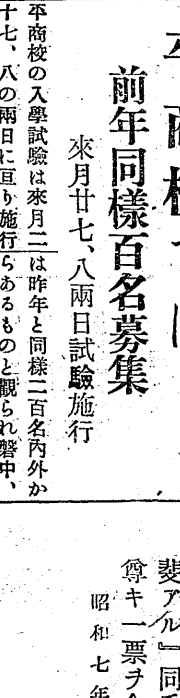 前年同樣百名募集
來月廿七、八兩日試驗施行
平商校の入學試驗は來月二
十七、八の兩日に亘り施行
は昨年と同樣二百名內外か
らあるものと觀られ磐中、
斐アル』同
尊キ一票ヲ
昭和七年